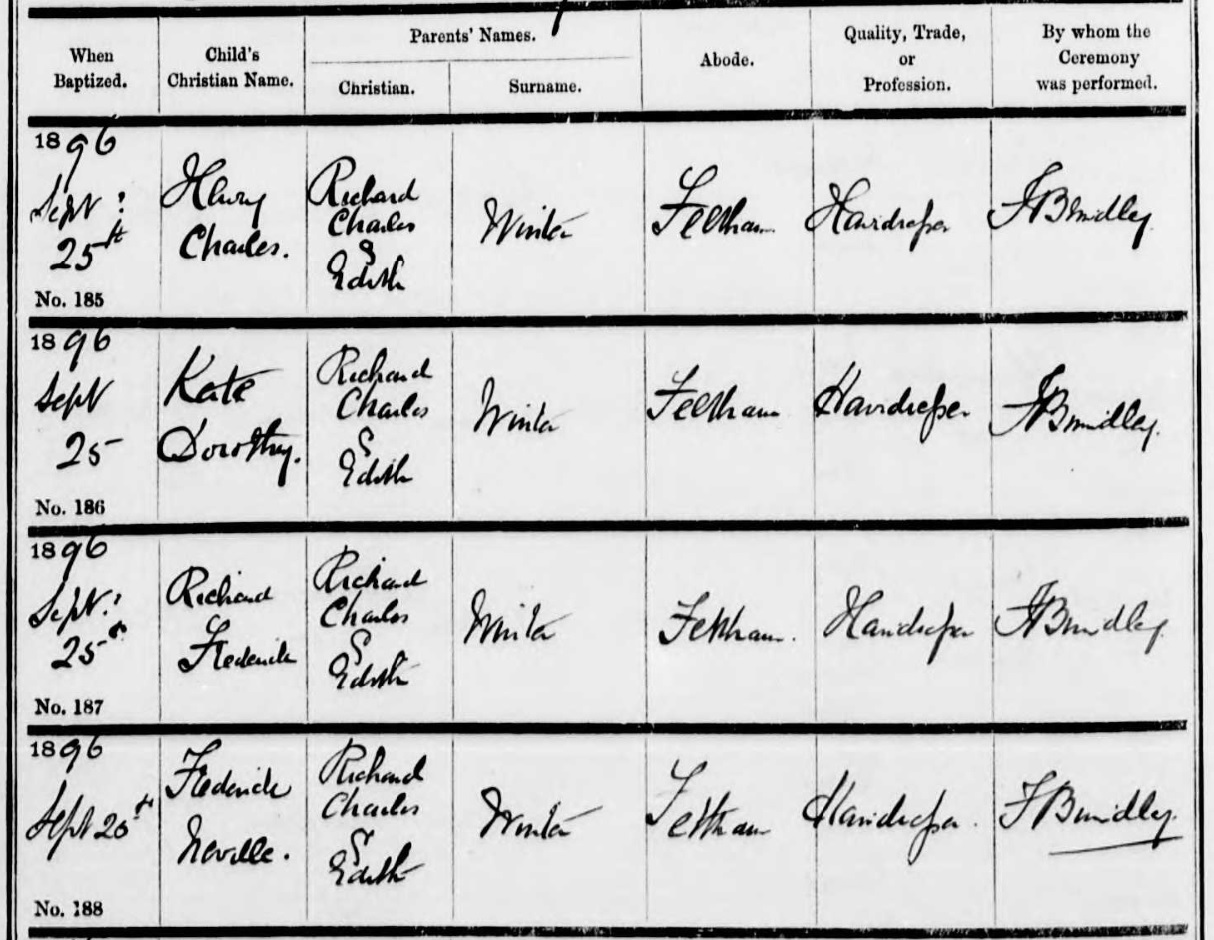 When Baptized.
Child's Christian Name.
Parents' Names.
Christian.
Surname.
Abode.
Quality, Trade, or Profession.
By whom the Ceremony was performed.
1896
Sept:
25th
No. 185
Henry
Charles.
Richard
Charles
&
Edith
Winter
Feltham
Hairdresser
1896
Sept
25
No. 186
Kate
Dorothy.
Richard
Charles
&
Edith
Winter
Feltham
Hairdresser
1896
Sept:
25th
No. 187
Richard
Frederick
Richard
Charles
&
Edith
Winter
Feltham.
Hairdresser
1896
Sept 25th
No. 188
Frederick
Neville.
Richard
Charles
&
Edith
Winter
Feltham
Hairdresser.